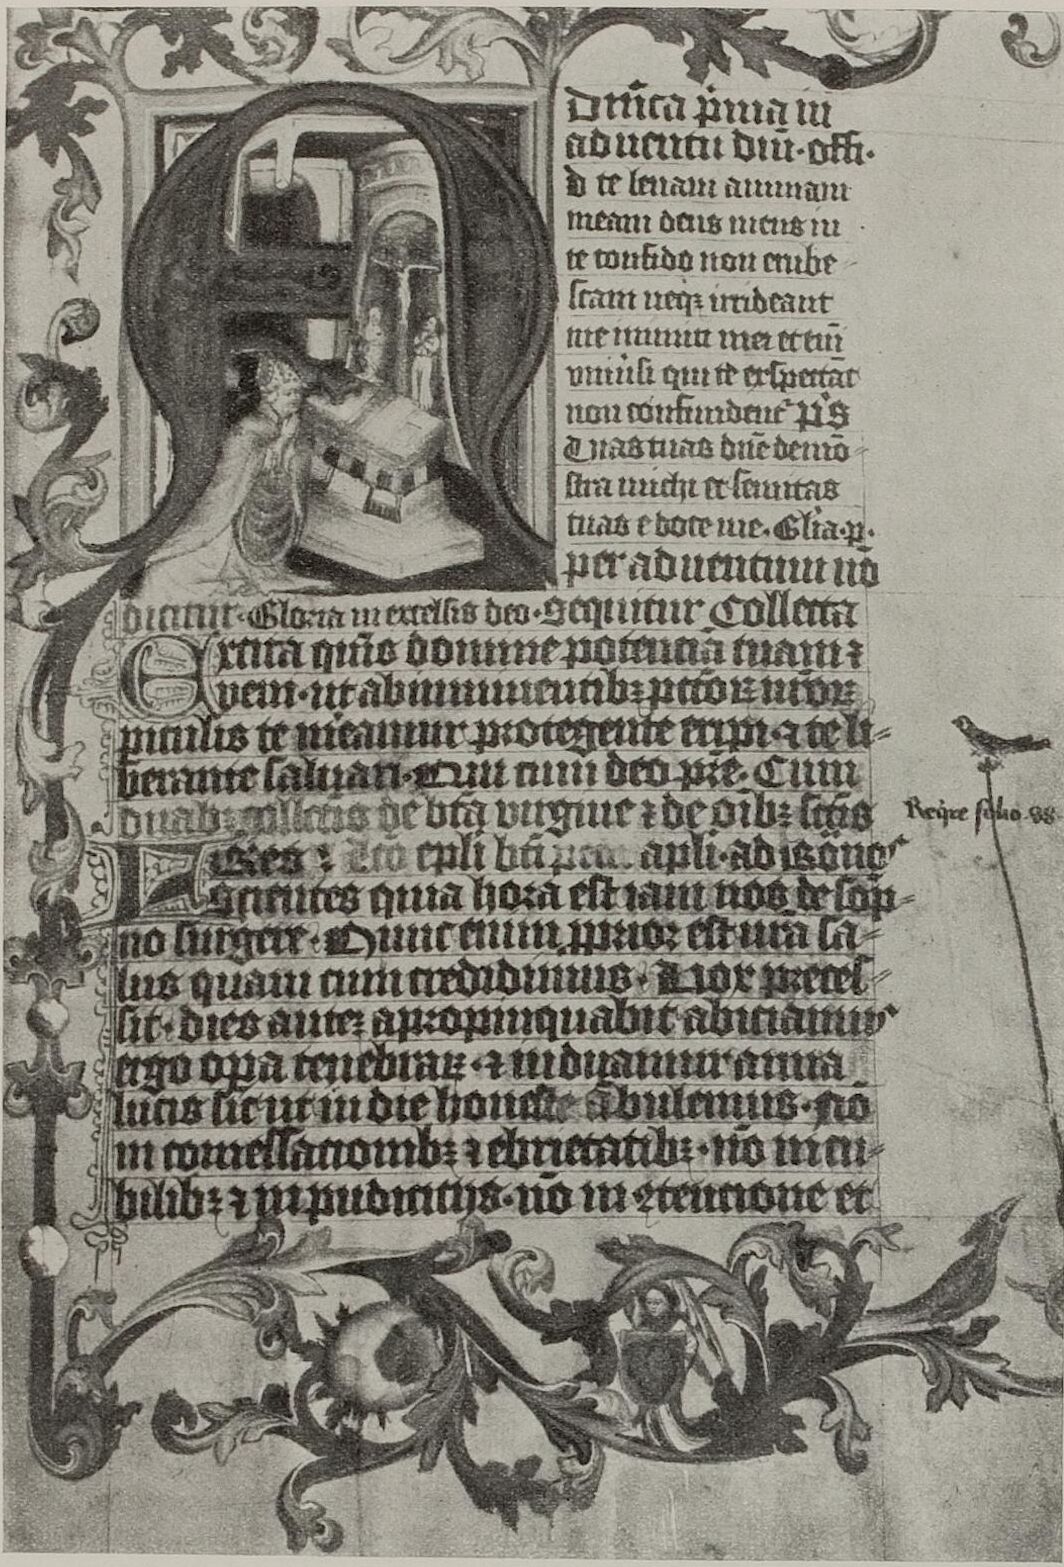 Dn̄ica p̄ma in
aduentu dn̄i · offi.
A d te leuam animam
meam deus meus in
te confido non erube
scam neqꝫ irrideant
me inimici mei et em̄
vniuersi qui te exspectāt
non confundent̄ P̄s
Uias tuas dn̄e demō
stra michi et semitas
tuas edoce me. Gl̄ia. p.
per aduentum nō
dicitur · Gloria in excelsis deo · Sequitur Collecta
Excita qm̄s domine potenciā tuam ⁊
veni · ut ab imminentibꝫ pctōꝝ nr̄oꝝ
piculis te meamur protegente eripi · ⁊ te li
berante saluari · Qui cum deo pr̄e. Cum
duabꝫ collectis de bt̄a virgine ⁊ de oībꝫ sctīs
epl̄i bt̄i apl̄i · ad
scientes quia hora est iam nos de sop̄
no surgere · Nunc enim ꝓprior est nr̄a sa
lus quam cum credidimus · Nox preces
sit · dies autēꝫ apropinquabit abiciamus
ergo oꝑa tenebraꝝ · ⁊ induamur arma
lucis sicut in die honeste ābulemus · nō
in comessacionibꝫ ⁊ ebrietatibꝫ · nō in cu
bilibꝫ ⁊ inpudicitijs · nō in ɔtencione et
Reqͥre folio · 88